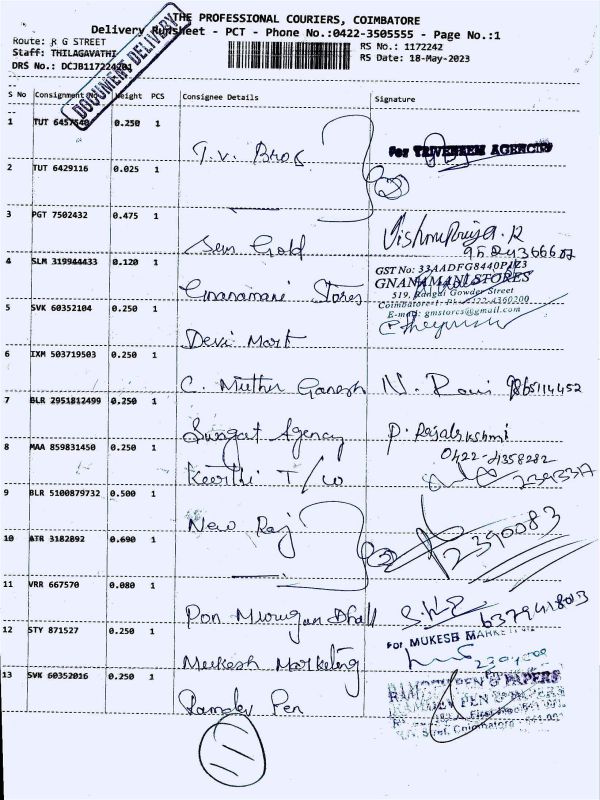 THE PROFESSIONAL COURIERS, COIMBATORE
Delivery Runsheet - PCT - Phone No.:0422-3505555 - Page No.:1
Route: R G STREET
RS No.: 1172242
Staff: THILAGAVATHI
RS Date: 18-May-2023
DRS No.: DCJB117224201
DOCUMENT DELIVERY
S No Consignment No. Weight PCS Consignee Details Signature
1 TUT 0.250 1 T.V. Bros for TRIVENEEM AGENCIES
2 TUT 6429116 0.025 1
3 PGT 7502432 0.475 1 Sem Gold
4 SLM 319944433 0.120 1 Gnanamani Stores
GST No:
GNANAMANI STORES
519, Rangai Gowder Street
Coimbatore-1. Ph: 0422-4360200
E-mail: gmstores@gmail.com
5 SVK 60352104 0.250 1 Devi Mart
6 IXM 503719503 0.250 1 C. Muthu Ganesh N. Ravi 9865114452
7 BLR 2951812499 0.250 1 Swagat Agency P. Rajalakshmi
0422-4358282
8 MAA 859831450 0.250 1 Keerthi T/co
9 BLR 5100879732 0.500 1 New Raj
2390083
10 ATR 3182892 0.690 1
11 VRR 667570 0.080 1 Pon Murugan Dhall
12 STY 871527 0.250 1 Mukesh Marketing for MUKESH
13 SVK 60352016 0.250 1 Ramdev Pen
PEN & PAPERS